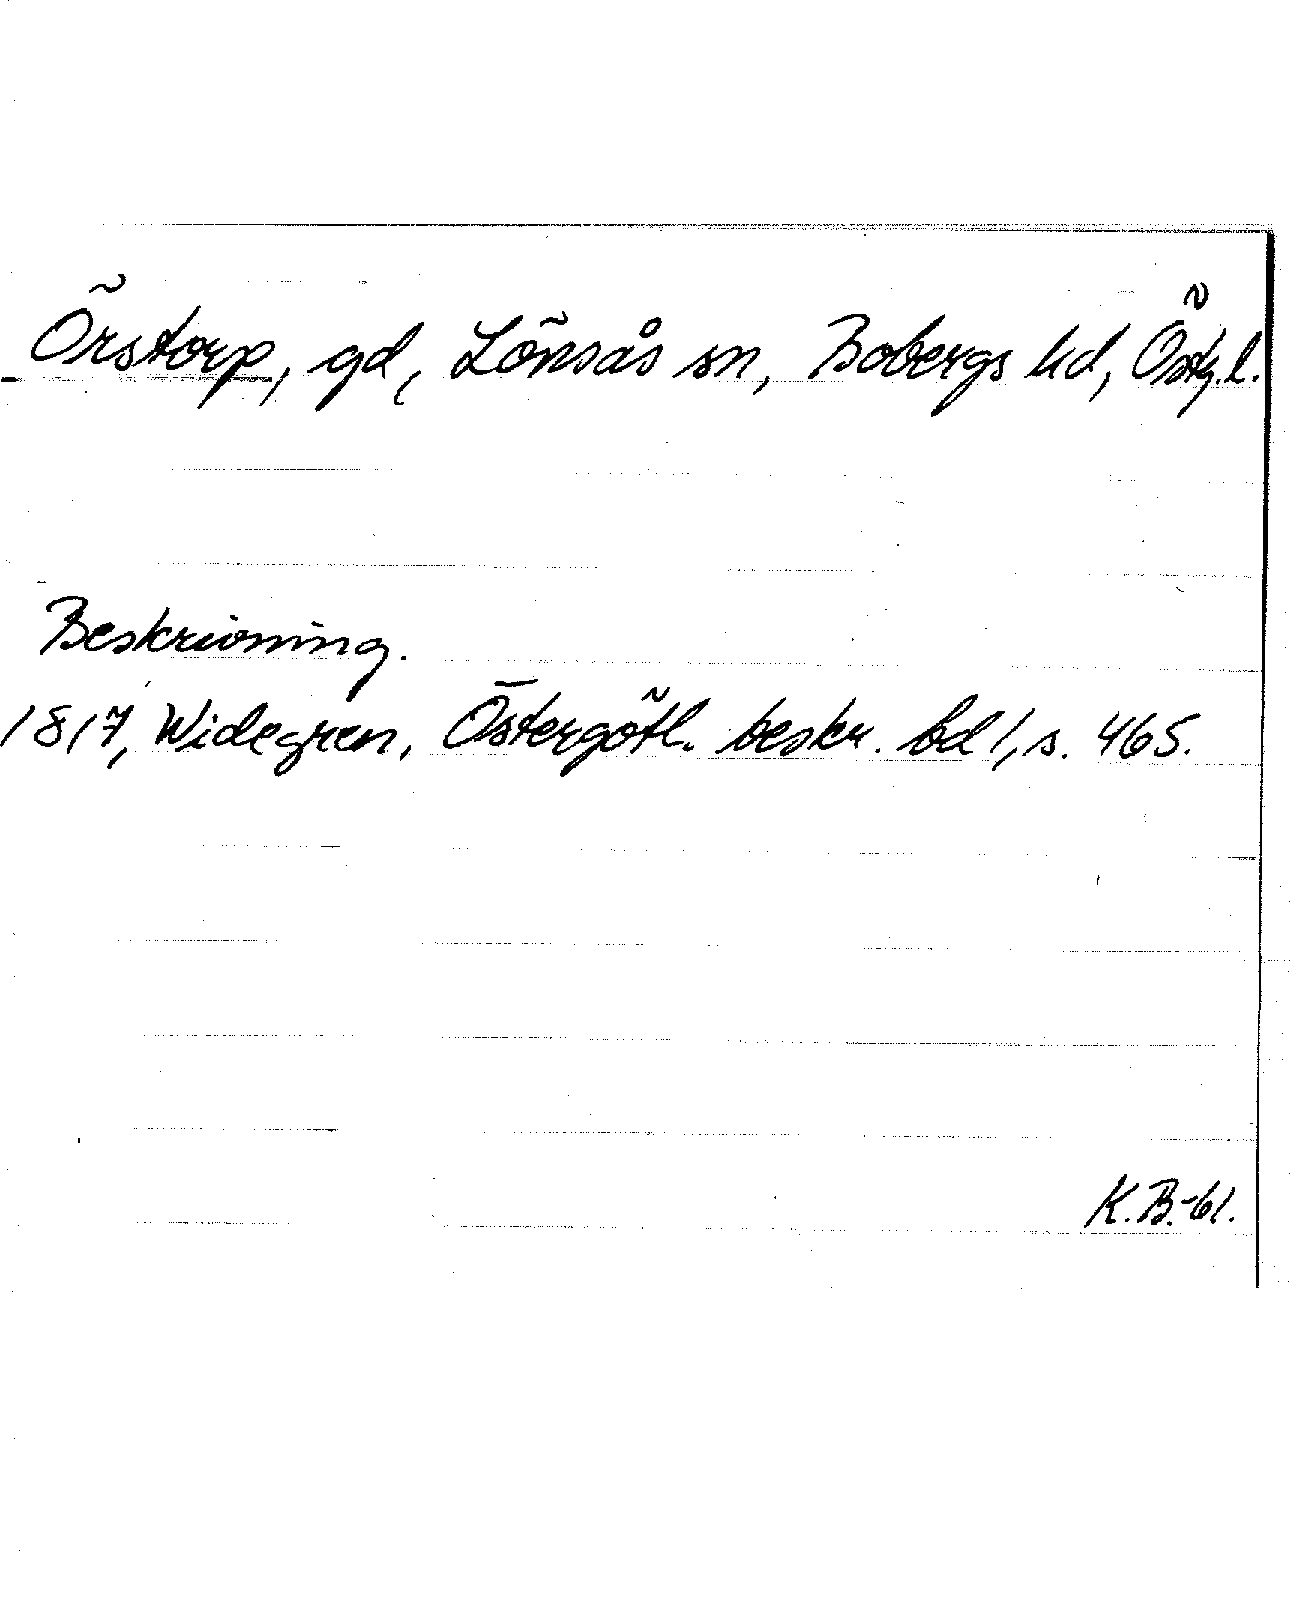 Örstorp, gd, Lönsås sn, Bobergs hd, Östg.l.
Beskrivning.
1817, Widegren, Östergötl. beskr. bd 1, s. 465.
K.B.-61.